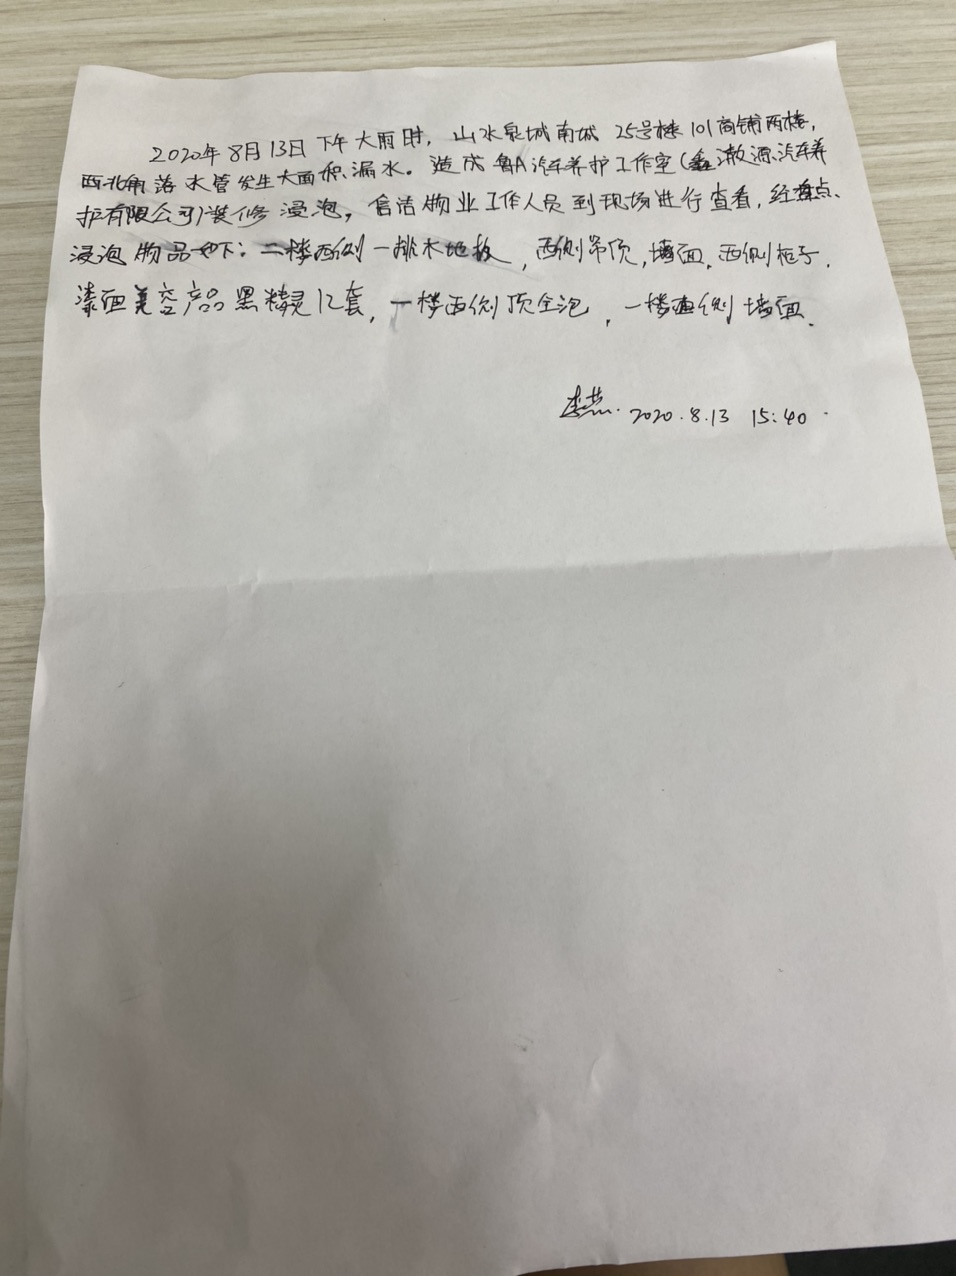 2020年8月13日下午大雨时，山水泉城南城 25号楼101商铺两楼，
西北角落水管发生大面积漏水。造成鲁A汽车养护工作室（鑫澈源汽车养
护有限公司）装修浸泡，信洁物业工作人员到现场进行查看，经盘点、
浸泡物品如下：二楼西侧一排木地板，西侧吊顶，墙面，西侧柜子，
漆面美容产品黑精灵12套，一楼西侧顶全泡，一楼西侧墙面．
2020.8.13 15:40